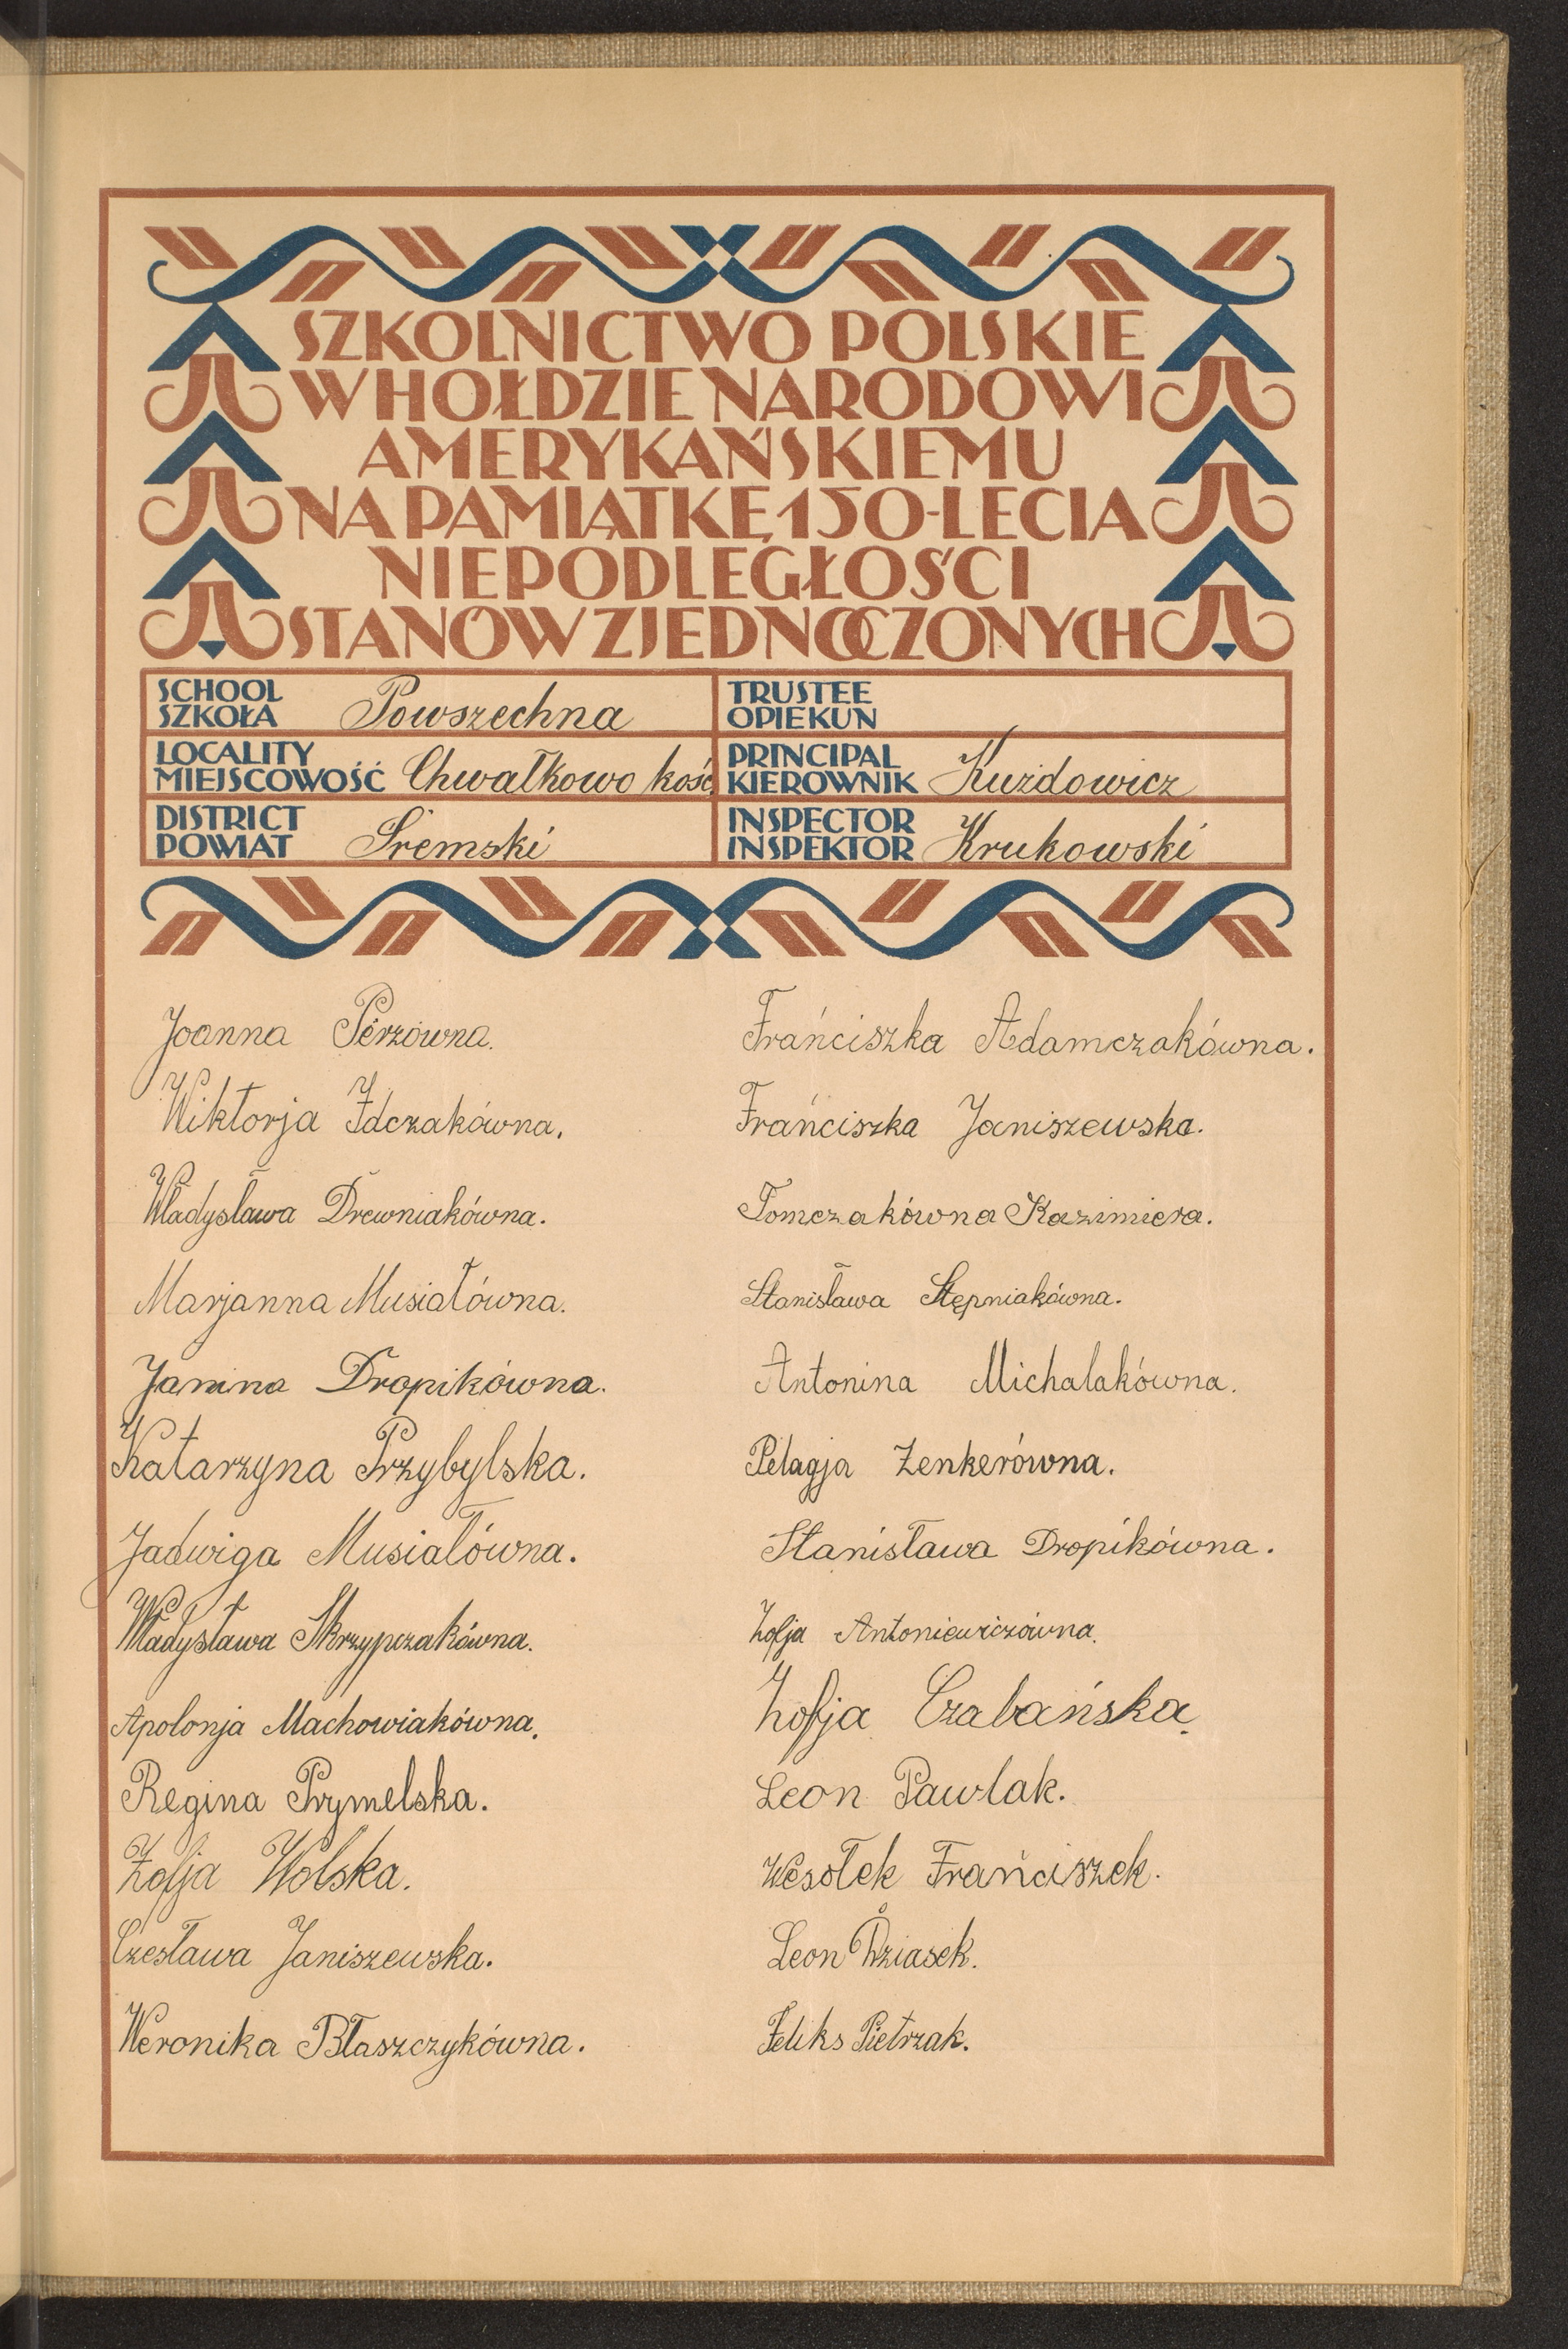 SZKOLNICTWO POLSKIE
W HOŁDZIE NARODOWI
AMERYKAŃSKIEMU
NA PAMIĄTKĘ 150-LECIA
NIEPODLEGŁOŚCI
STANÓW ZJEDNOCZONYCH
SCHOOL
SZKOŁA Powszechna
TRUSTEE
OPIEKUN
LOCALITY
MIEJSCOWOŚĆ Chwałkowo kośc.
PRINCIPAL
KIEROWNIK Kużdowicz
DISTRICT
POWIAT Śremski
INSPECTOR
INSPEKTOR Krukowski
Joanna Perzówna.
Wiktorja Idczakówna.
Władysława Drewniakówna.
Marjanna Musiałówna.
Janina Dropikówna.
Katarzyna Przybylska.
Jadwiga Musiałówna.
Władysława Skrzypczakówna.
Apolonja Machowiakówna.
Regina Prymelska.
Zofja Wolska.
Czesława Janiszewska.
Weronika Błaszczykówna.
Frańciszka Adamczakówna.
Frańciszka Janiszewska.
Tomczakówna Kazimiera.
Stanisława Stępniakówna.
Antonina Michalakówna.
Pelagja Zenkerówna.
Stanisława Dropikówna.
Zofja Antoniewiczówna.
Zofja Czabańska.
Leon Pawlak.
Wesołek Frańciszek.
Leon
Feliks Pietrzak.